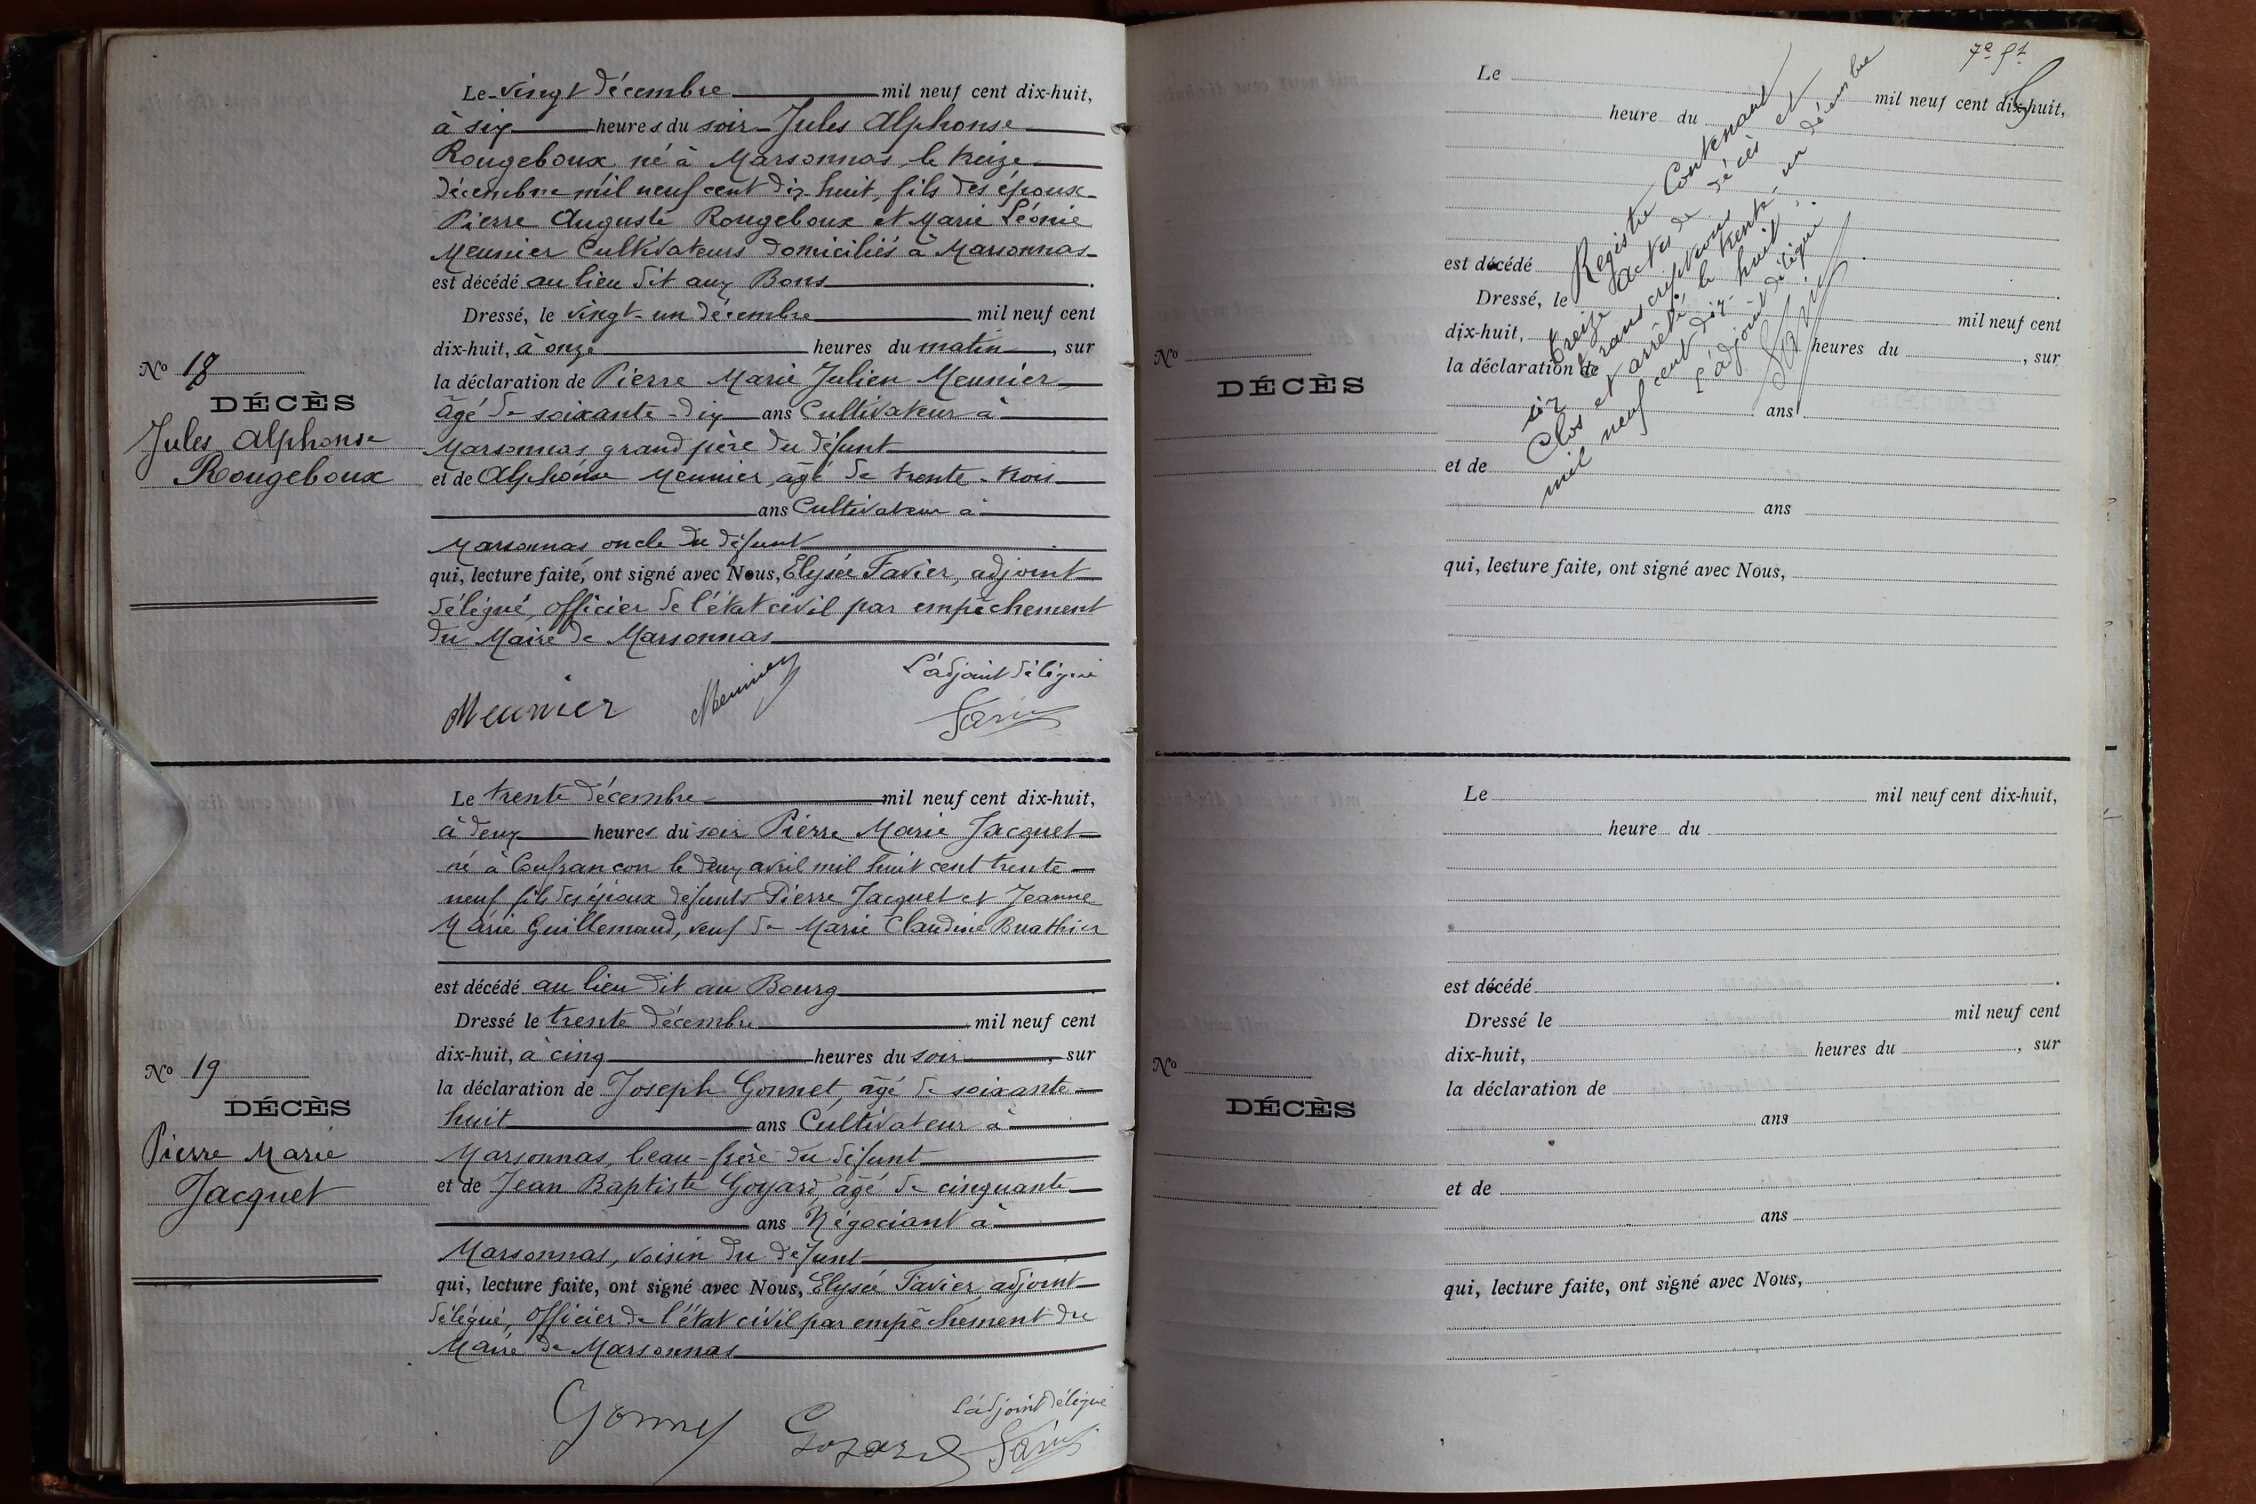 Le vingt décembre mil neuf cent dix-huit,
à six heures du soir Jules Alphonse
Rougeboux né à Marsonnas le treize
décembre mil neuf cent dix huit, fils des époux
Pierre Auguste Rougeboux et Marie Léonie
Meunier Cultivateurs domiciliés à Marsonnas
est décédé au lieu dit aux Bons.
Dressé, le vingt-un décembre mil neuf cent
dix-huit, à onze heures du matin, sur
No 18
DÉCÈS
Jules Alphonse
Rougeboux
la déclaration de Pierre Marie Julien Meunier
âgé de soixante-dix ans Cultivateur à
Marsonnas grand père du défunt
et de Alphonse Meunier, âgé de trente-trois
ans Cultivateur à
Marsonnas oncle du défunt
qui, lecture faite, ont signé avec Nous, Elysée Favier, adjoint
délégué, officier de l'état civil par empêchement
du Maire de Marsonnas
L'adjoint délégué
Meunier Meunier Favier
Le trente décembre mil neuf cent dix-huit,
à deux heures du soir Pierre Marie Jacquet
né à Confrançon le deux avril mil huit cent trente
neuf fils des époux défunts Pierre Jacquet et Jeanne
Marie Guillemaud, veuf de Marie Claudine Buathier
est décédé au lieu dit au Bourg.
Dressé le trente décembre mil neuf cent
dix-huit, à cinq heures du soir, sur
No 19
DÉCÈS
Pierre Marie
Jacquet
la déclaration de Joseph Gonnet, âgé de soixante
huit ans Cultivateur à
Marsonnas, beau-frère du défunt
et de Jean Baptiste Goyard, âgé de cinquante
ans Négociant à
Marsonnas, voisin du défunt
qui, lecture faite, ont signé avec Nous, Elysée Favier, adjoint
délégué, officier de l'état civil par empêchement du
Maire de Marsonnas
L'adjoint délégué
Gonnet Goyard Favier
7e ft
Le mil neuf cent dix-huit,
heure du
est décédé .
Dressé, le mil neuf cent
dix-huit, heures du , sur
la déclaration de
ans
No
DÉCÈS
et de
ans
qui, lecture faite, ont signé avec Nous,
Registre Contenant
treize actes de décès et
six transcriptions
Clos et arrêté le trente-un décembre
mil neuf cent dix-huit.
L'adjoint délégué
Favier
Le mil neuf cent dix-huit,
heure du
est décédé .
Dressé le mil neuf cent
dix-huit, heures du , sur
No
DÉCÈS
la déclaration de
ans
et de
ans
qui, lecture faite, ont signé avec Nous,